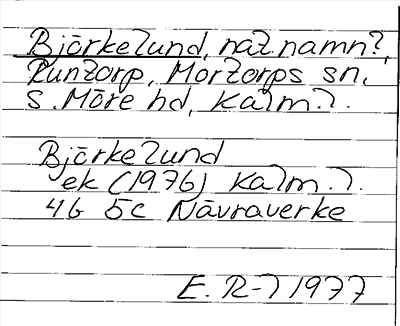 Björkelund, nat.namn?,
Runtorp, Mortorps sn,
S. Möre hd, Kalm. l.
Björkelund
ek (1976) Kalm. l.
4G 5c Nävraverke
E. R-l 1977